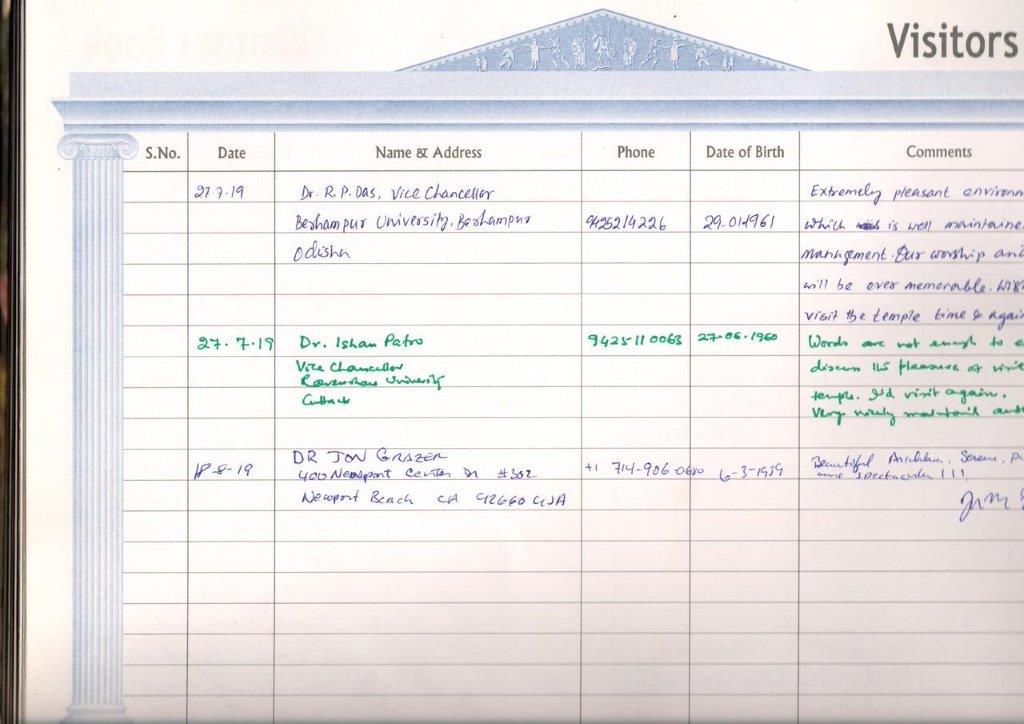 Visitors
S.No. Date Name & Address Phone Date of Birth Comments
27.7.19 Dr. R.P. Das, Vice Chancellor Extremely pleasant environm
Berhampur University, Berhampur 9425214226 29.01.1961 which is well maintaine
Odisha management. Our worship and
will be ever memorable. Wish
visit the temple time & again
27.7.19 Dr. Ishan Patro 9425110063 27-06-1960 Words are not enough to e
Vice Chancellor discuss the pleasure of visit
Ravenshaw University
Cuttack temple. I'd visit again.
Very nicely
DR JON GRAZER
-8-19 400 Newport Center Dr #302 +1 714-906-0680 6-3-1959 Beautiful Serene,
and spectacular !!!
Newport Beach CA 92660 USA